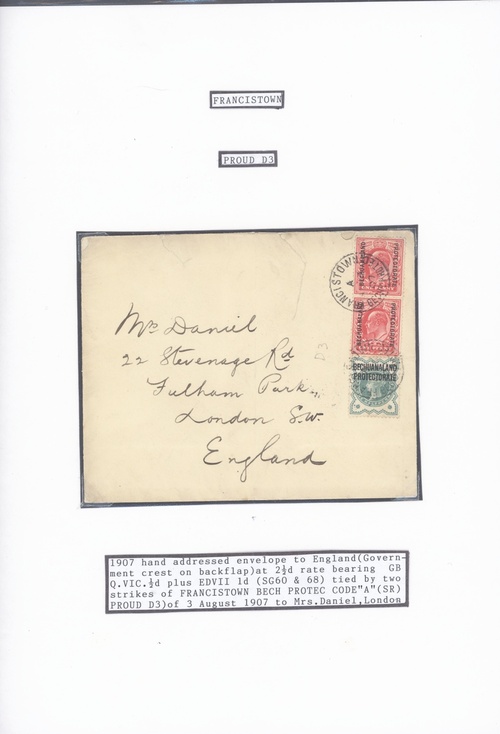 FRANCISTOWN
PROUD D3
FRANCISTOWN
A
BECHUANALAND
PROTECTORATE
BECHUANALAND
PROTECTORATE
BECHUANALAND
PROTECTORATE
D3
Mrs Daniel
22 Stevenage Rd
Fulham Park
London S.W.
England
1907 hand addressed envelope to England(Govern-
ment crest on backflap)at 2½d rate bearing GB
Q.VIC.½d plus EDVII 1d (SG60 & 68) tied by two
strikes of FRANCISTOWN BECH PROTEC CODE"A"(SR)
PROUD D3)of 3 August 1907 to Mrs.Daniel,London